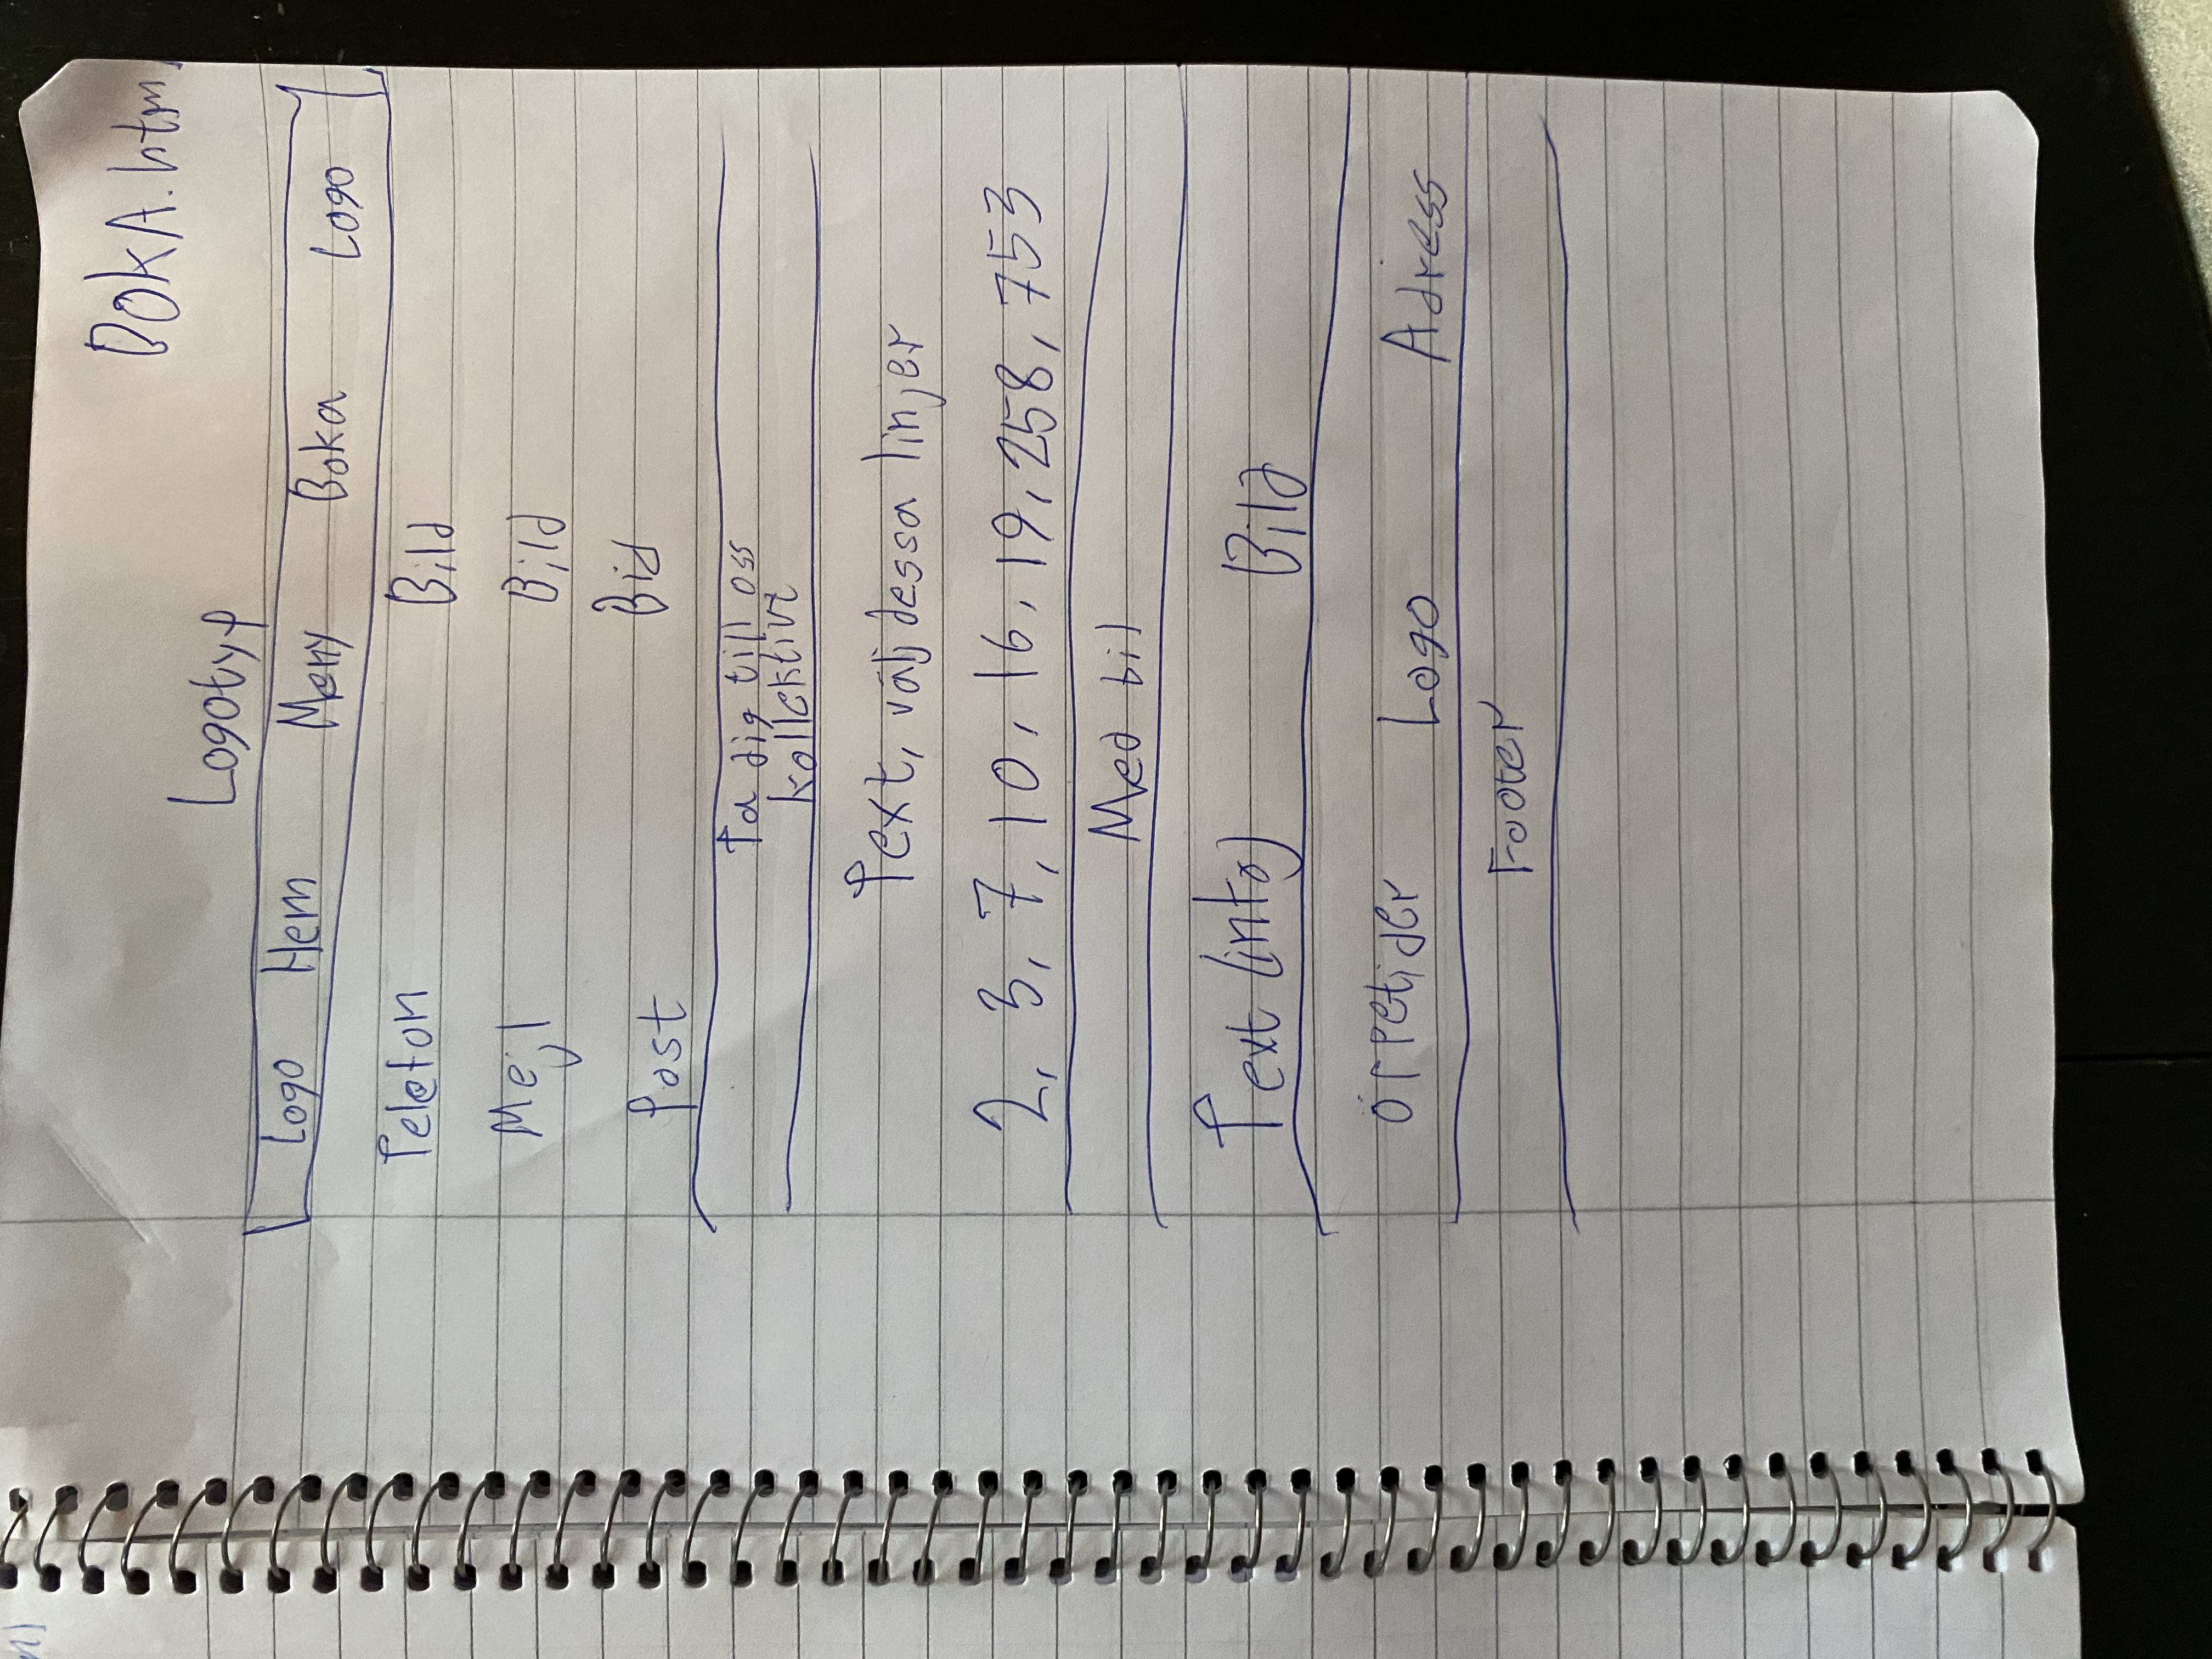 BOKA.html
Logotyp
Logo Hem Meny Boka Logo
Telefon Bild
Mejl Bild
Post Bid
Ta dig till oss
kollektivt
Text, välj dessa linjer
2, 3, 7, 10, 16, 19, 258, 753
Med bil
Text (info) Bild
Öppetider Logo Adress
Footer